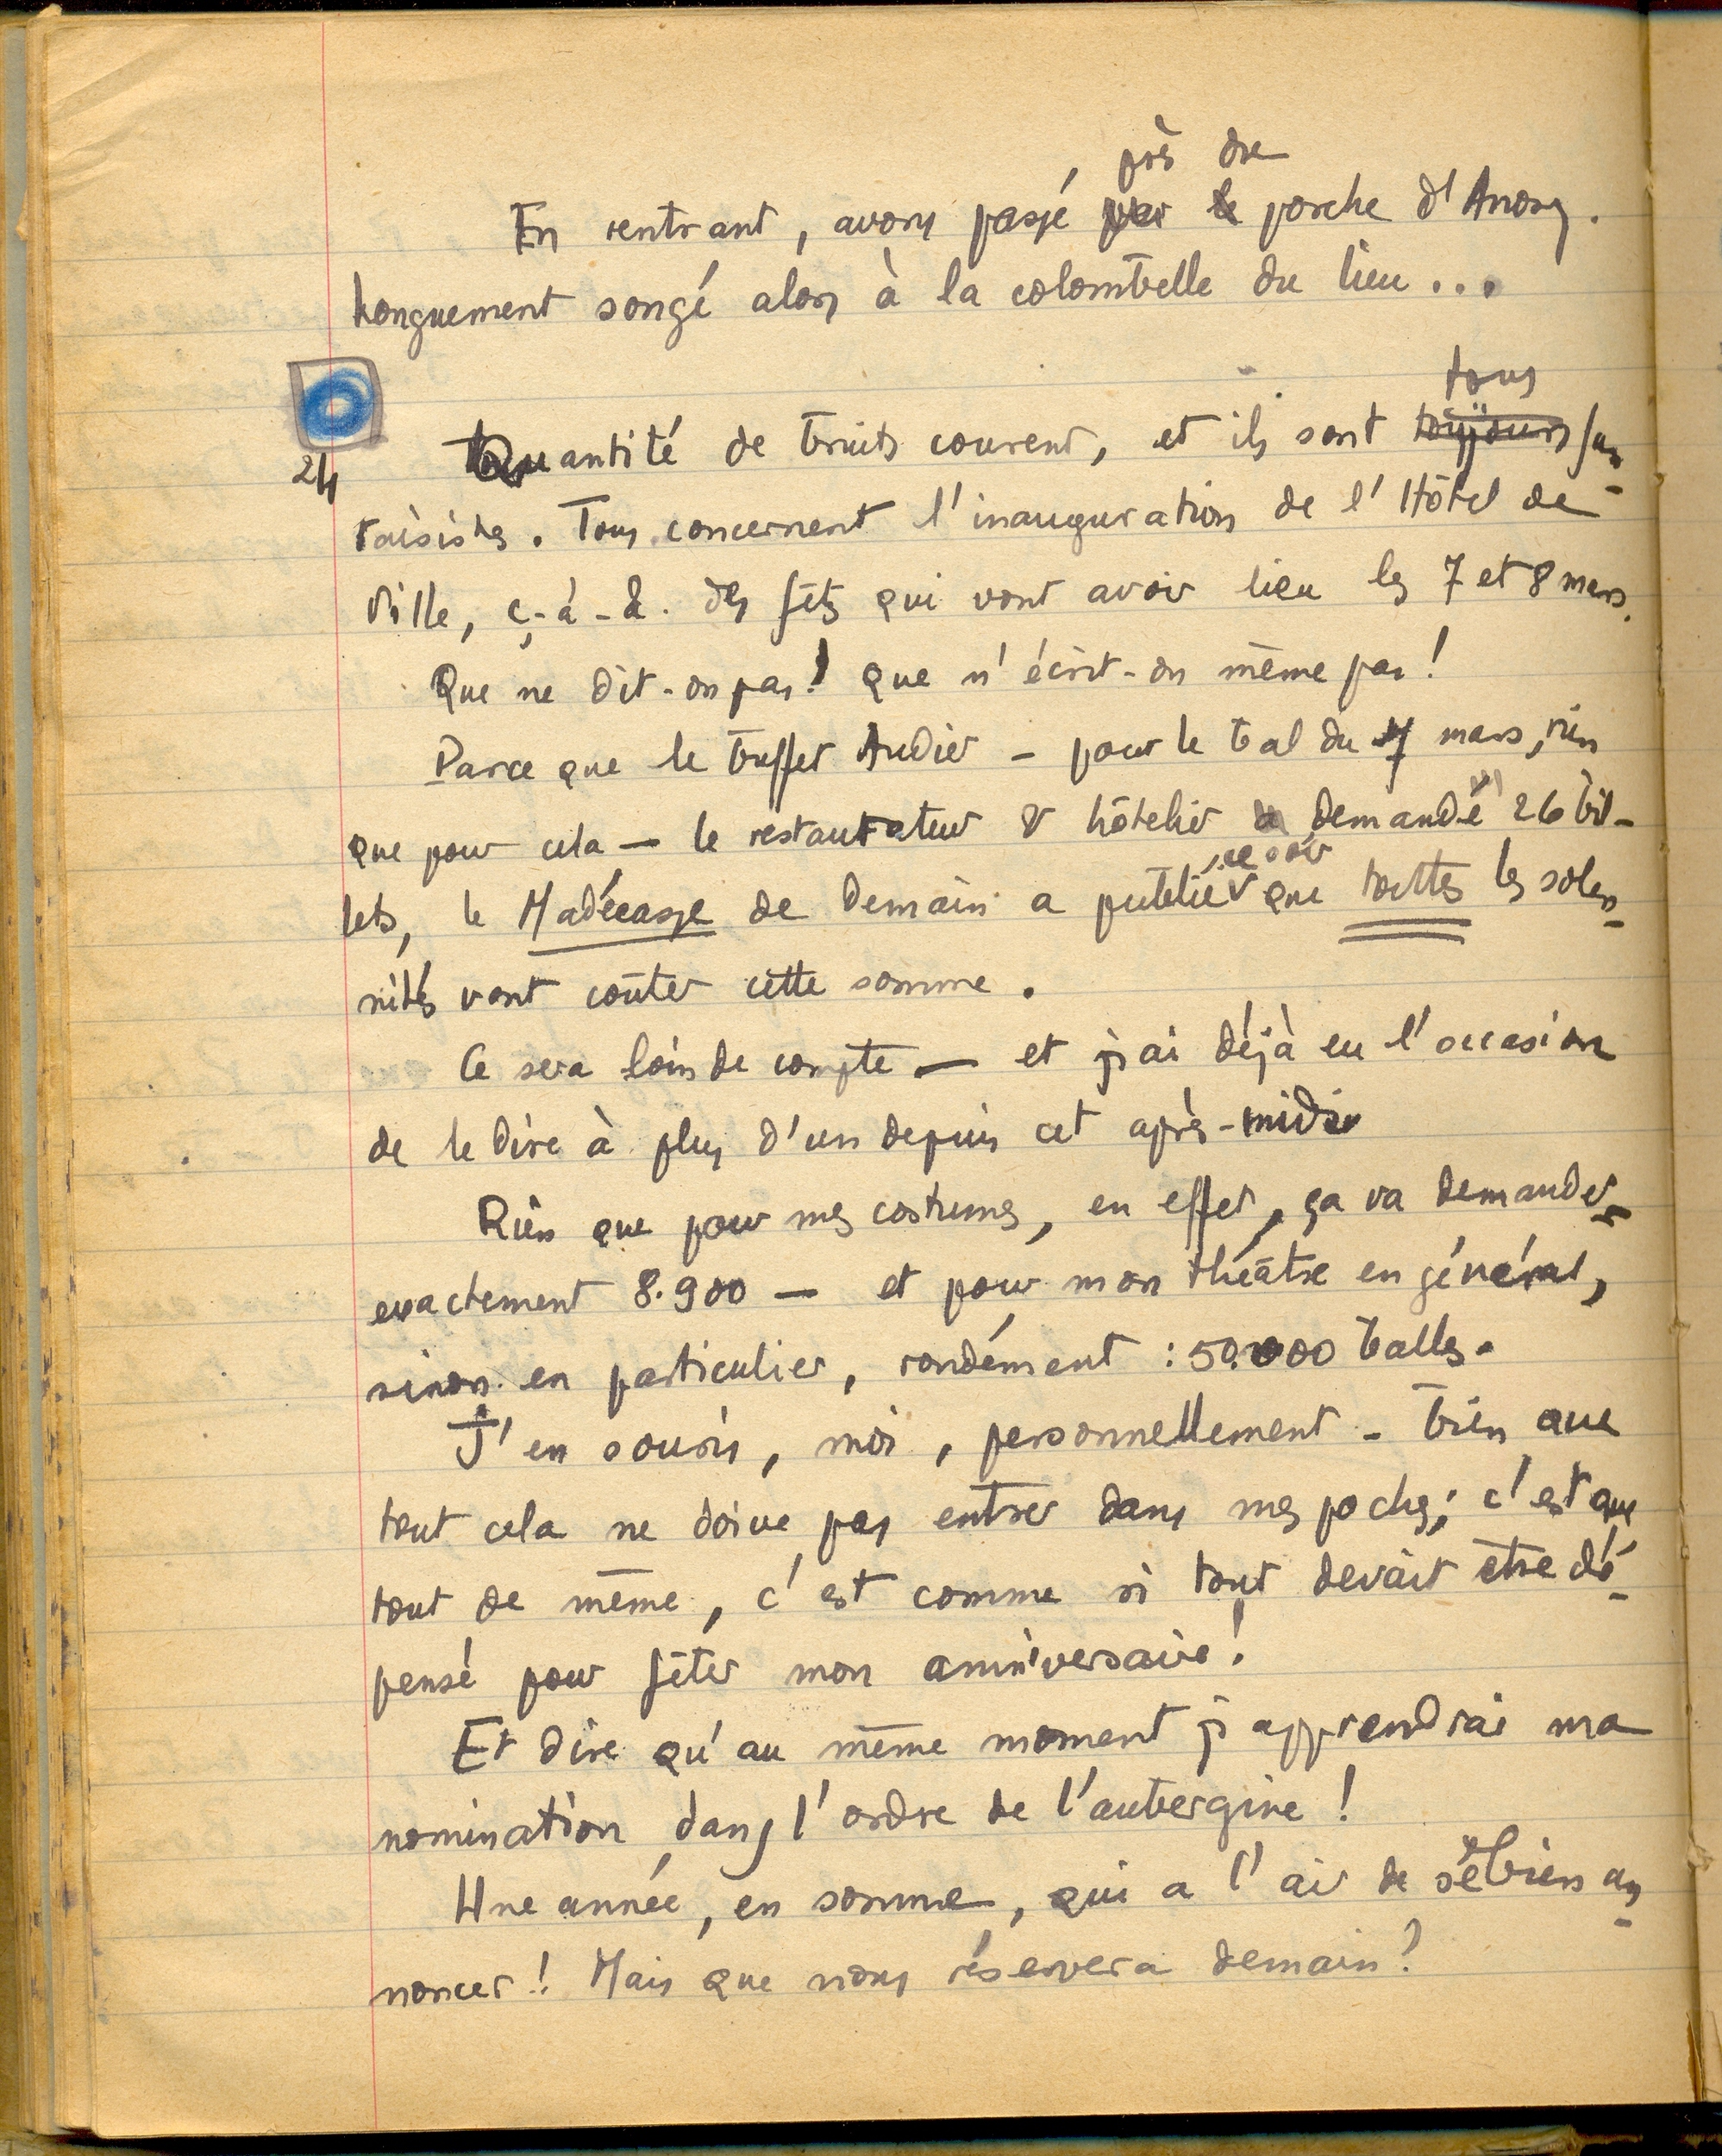 près du
En rentrant, avons passé par le porche d'Anosy.
Longuement songé alors à la colombelle du lieu...
24
tous
Quantité de bruits courent, et ils sont toujours fan-
taisistes. Tous concernent l'inauguration de l'Hôtel de
Ville, c.-à-d. des fêtes qui vont avoir lieu les 7 et 8 mars.
Que ne dit-on pas! que n'écrit-on même pas!
Parce que le buffet Audier — pour le bal du 7 mars, rien
que pour cela — le restaurateur & hôtelier a demandé 26 bil-
, ce soir
lets, le Madécasse de Demain a publié que toutes les solen-
nités vont coûter cette somme.
Ce sera loin de compte — et j'ai déjà eu l'occasion
de le dire à plus d'un depuis cet après-midi.
Rien que pour mes costumes, en effet, ça va demander
exactement 8.900 — et pour mon théâtre en général,
sinon en particulier, rondement : 50.000 balles.
J'en souris, moi, personnellement - bien que
tout cela ne doive pas entrer dans mes poches; c'est que
tout de même, c'est comme si tout devait être dé-
pensé pour fêter mon anniversaire!
Et dire qu'au même moment j'apprendrai ma
nomination dans l'ordre de l'aubergine!
Une année, en somme, qui a l'air de se bien an-
noncer! Mais que nous réservera demain?